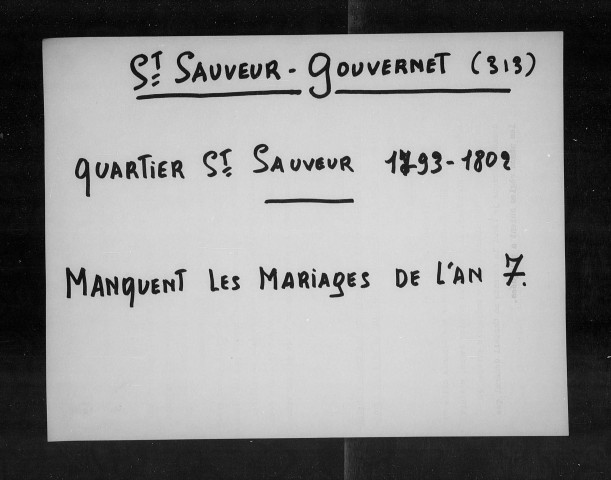 ST SAUVEUR - GOUVERNET (313)
QUARTIER ST SAUVEUR 1793-1802
MANQUENT LES MARIAGES DE L'AN 7.